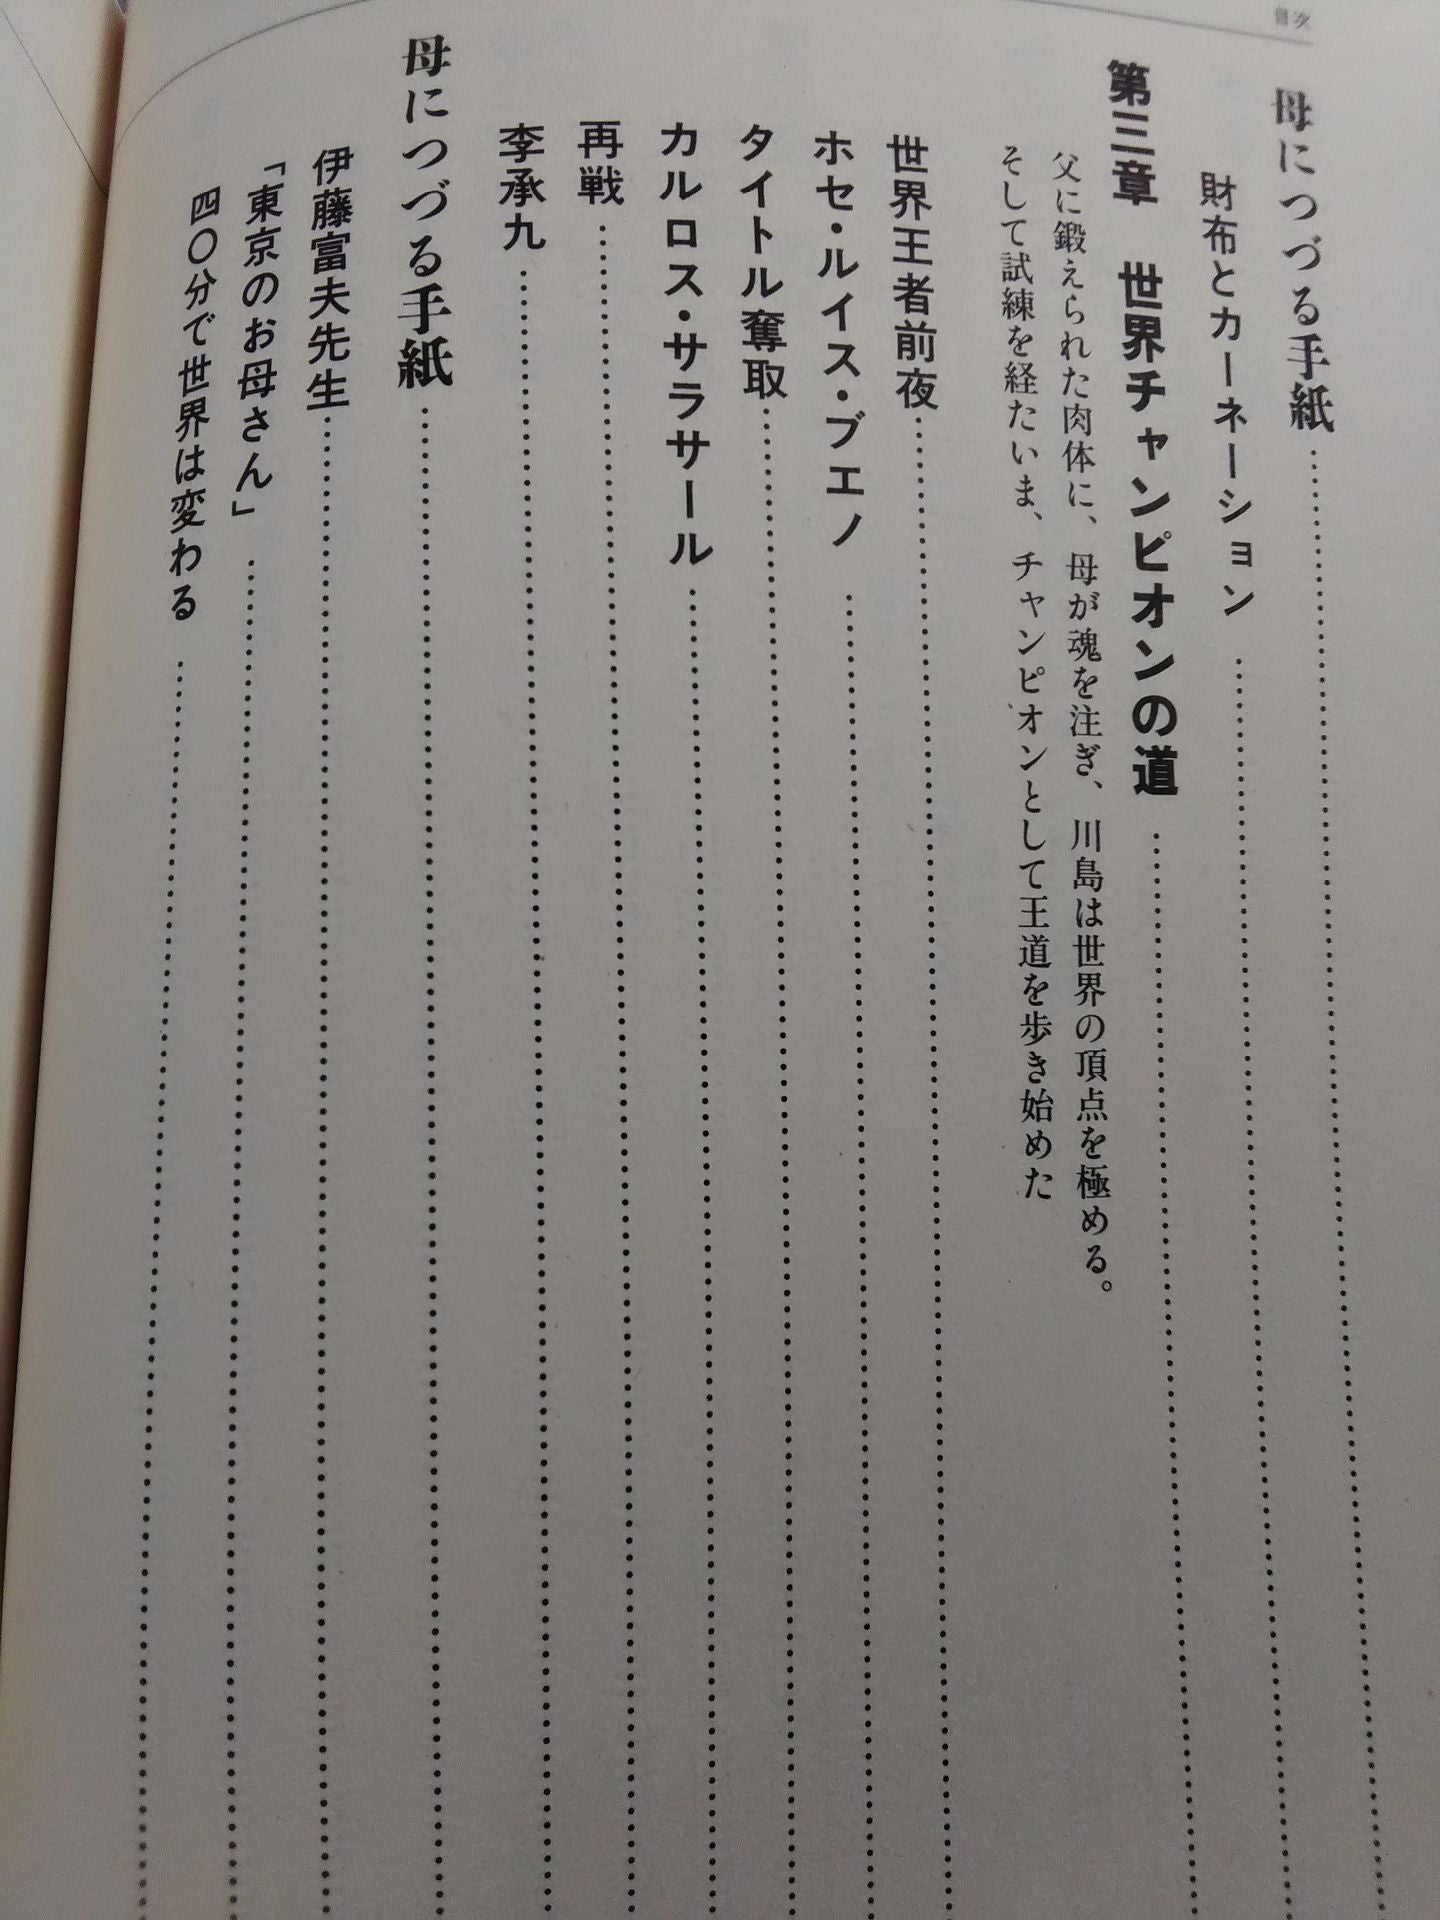 目次
母につづる手紙
財布とカーネーション
第三章 世界チャンピオンの道
父に鍛えられた肉体に、母が魂を注ぎ、川島は世界の頂点を極める。
そして試練を経たいま、チャンピオンとして王道を歩き始めた
世界王者前夜
ホセ・ルイス・ブエノ
タイトル奪取
カルロス・サラサール
再戦
李承九
母につづる手紙
伊藤富夫先生
「東京のお母さん」
四〇分で世界は変わる